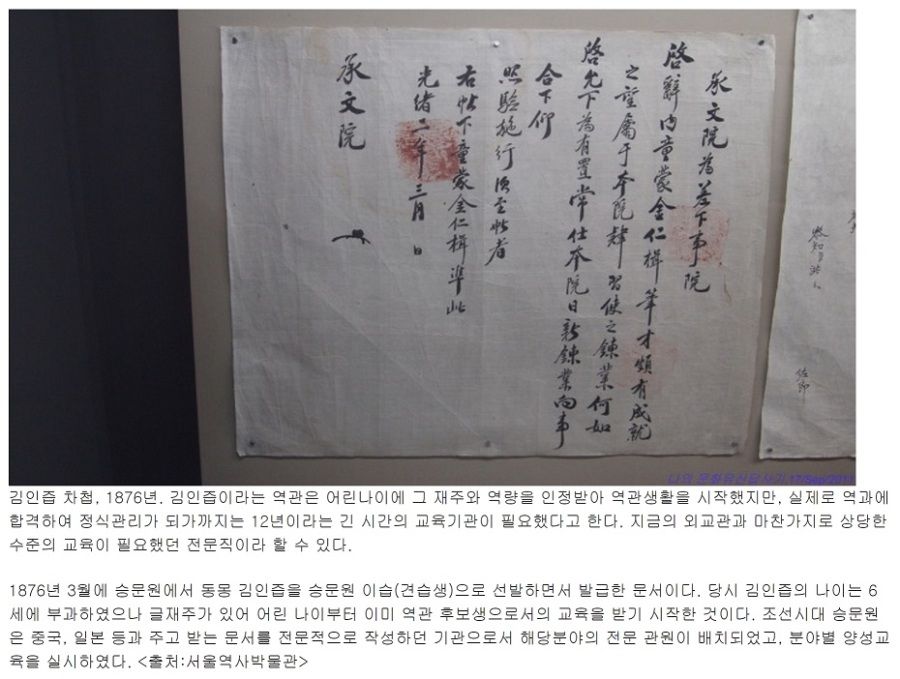 承文院為差下事院
啓辭內童蒙金仁楫筆才頗有成就
之望屬于本院肄習使之鍊業何如
啓允下為有置常仕本院日新鍊業向事
合下仰
照驗施行須至帖者
右帖下童蒙金仁楫準此
光緖二年三月 日
承文院
佐郎
나의 문화유산답사기,17/Sep/2011
김인즙 차첩, 1876년. 김인즙이라는 역관은 어린나이에 그 재주와 역량을 인정받아 역관생활을 시작했지만, 실제로 역과에
합격하여 정식관리가 되가까지는 12년이라는 긴 시간의 교육기관이 필요했다고 한다. 지금의 외교관과 마찬가지로 상당한
수준의 교육이 필요했던 전문직이라 할 수 있다.
1876년 3월에 승문원에서 동몽 김인즙을 승문원 이습(견습생)으로 선발하면서 발급한 문서이다. 당시 김인즙의 나이는 6
세에 부과하였으나 글재주가 있어 어린 나이부터 이미 역관 후보생으로서의 교육을 받기 시작한 것이다. 조선시대 승문원
은 중국, 일본 등과 주고 받는 문서를 전문적으로 작성하던 기관으로서 해당분야의 전문 관원이 배치되었고, 분야별 양성교
육을 실시하였다. <출처:서울역사박물관>